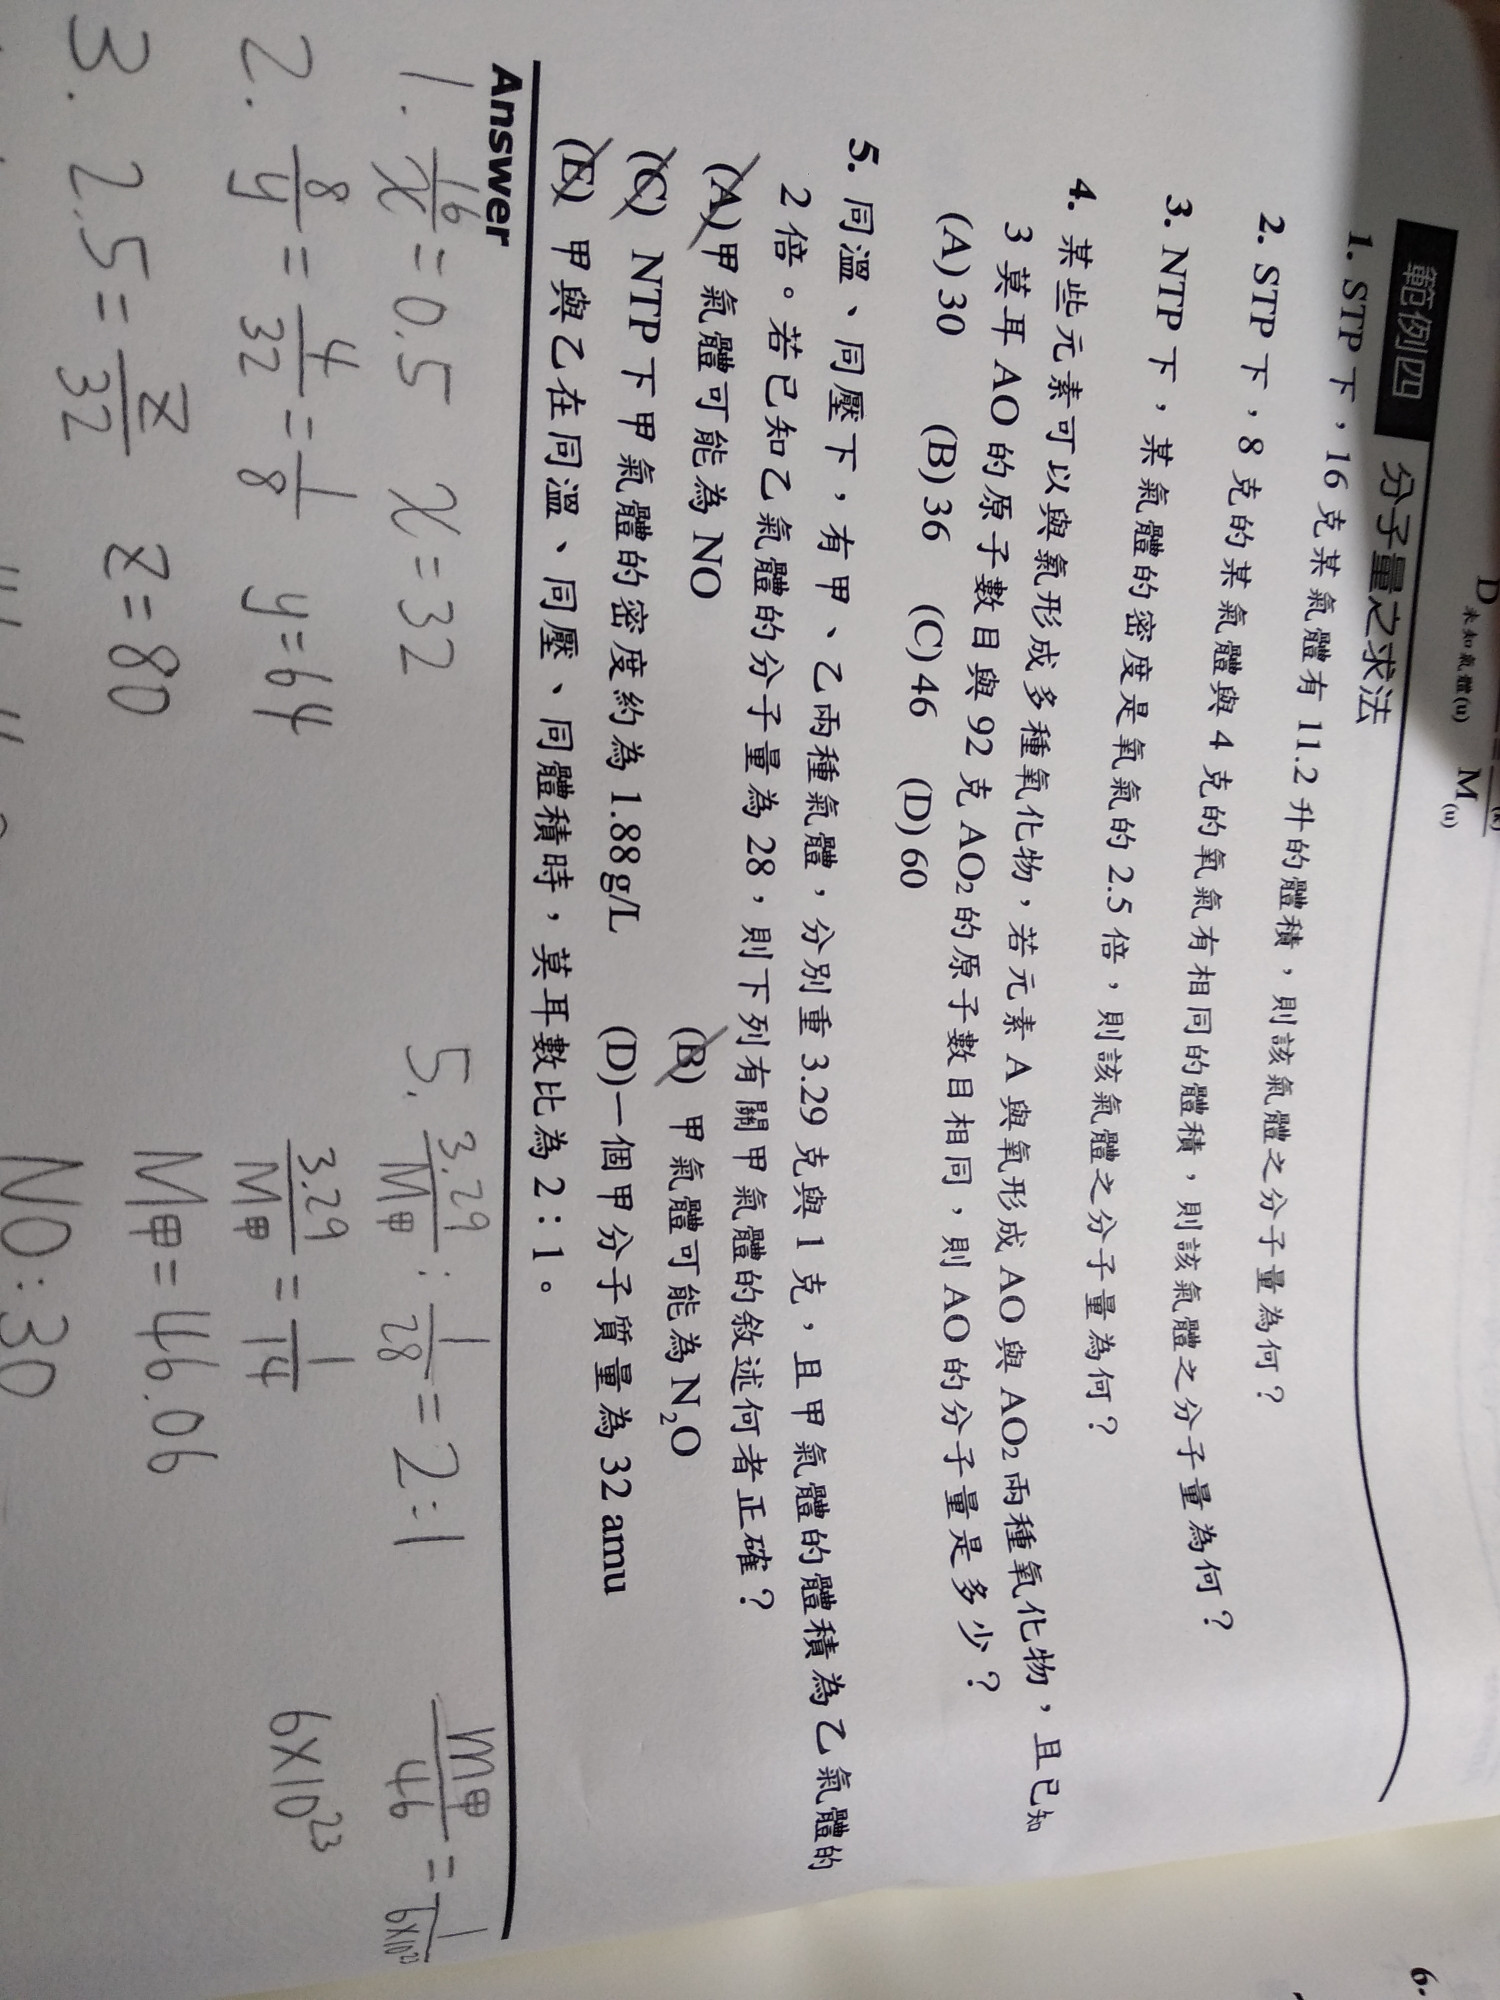 D未知氣體(u) M(u)
範例四 分子量之求法
1. STP 下，16 克某氣體有 11.2 升的體積，則該氣體之分子量為何？
2. STP 下，8 克的某氣體與 4 克的氧氣有相同的體積，則該氣體之分子量為何？
3. NTP 下，某氣體的密度是氧氣的 2.5 倍，則該氣體之分子量為何？
4. 某些元素可以與氧形成多種氧化物，若元素 A 與氧形成 AO 與 AO₂ 兩種氧化物，且已知
3 莫耳 AO 的原子數目與 92 克 AO₂ 的原子數目相同，則 AO 的分子量是多少？
(A) 30 (B) 36 (C) 46 (D) 60
5. 同溫、同壓下，有甲、乙兩種氣體，分別重 3.29 克與 1 克，且甲氣體的體積為乙氣體的
2 倍。若已知乙氣體的分子量為 28，則下列有關甲氣體的敘述何者正確？
(A) 甲氣體可能為 NO (B) 甲氣體可能為 N₂O
(C) NTP 下甲氣體的密度約為 1.88 g/L (D) 一個甲分子質量為 32 amu
(E) 甲與乙在同溫、同壓、同體積時，莫耳數比為 2：1。
Answer
1. 16/x = 0.5 x = 32
2. 8/y = 4/32 = 1/8 y = 64
3. 2.5 = z/32 z = 80
5. 3.29/M甲 : 1/28 = 2:1
3.29/M甲 = 1/14
M甲 = 46.06
NO : 30
m甲/46 = 1/6×10²³
6×10²³
6.